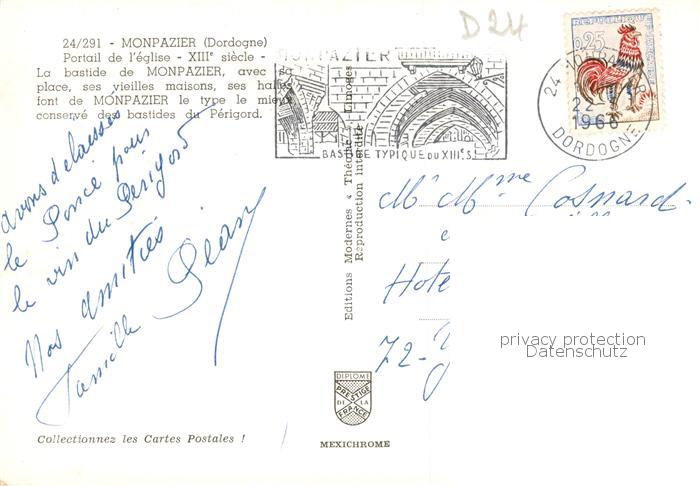 D 24
24/291 - MONPAZIER (Dordogne)
Portail de l'église - XIIIe siècle -
La bastide de MONPAZIER, avec sa
place, ses vieilles maisons, ses halles
font de MONPAZIER le type le mieux
conservé des bastides du Périgord.
MONPAZIER
BASTIDE TYPIQUE DU XIIIe S.
REPUBLIQUE FRANÇAISE
0,25
24
22
1968
DORDOGNE
avons délaissé
le Poncé pour
le vin du Périgord
Nos amitiés
Famille
Editions Modernes « Théojac » Limoges
Reproduction Interdite
Mr Mme Cosnard.
Hote
72-
privacy protection
Datenschutz
DIPLOME
PRESTIGE
DE LA
FRANCE
Collectionnez les Cartes Postales !
MEXICHROME